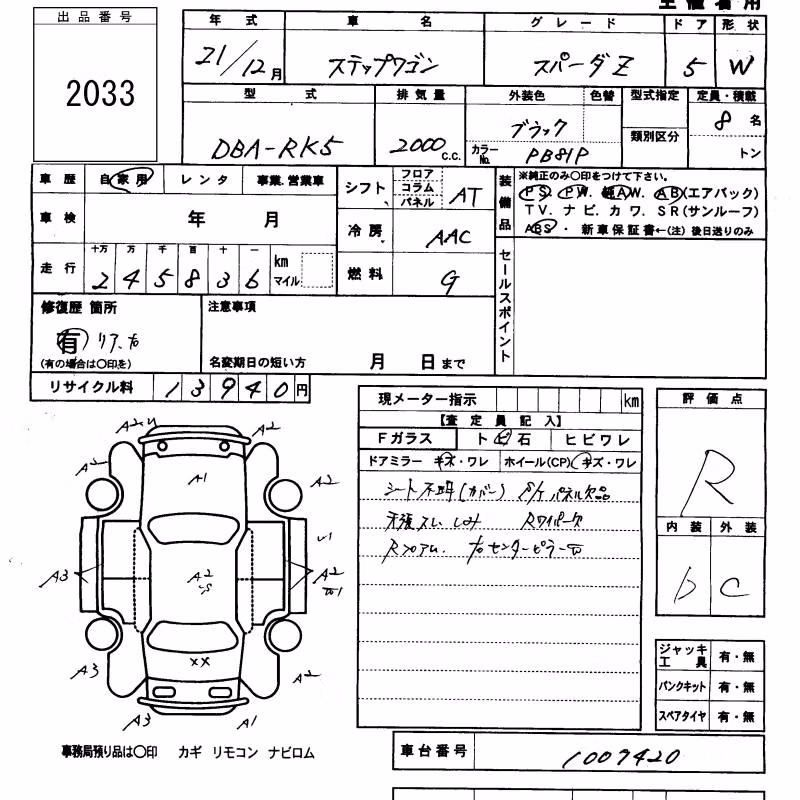 出品番号
2033
年式 車名 グレード ドア 形状
21/12月 ステップワゴン スパーダZ 5 W
型式 排気量 外装色 色替 型式指定 定員・積載
DBA-RK5 2000 c.c. ブラック 類別区分 8名
カラーNo. PB81P トン
車歴 自家用 レンタ 事業.営業車
シフト フロア コラム パネル AT
装備品 ※純正のみ〇印をつけて下さい。
PS. PW. 純AW. AB(エアバック)
TV. ナビ. カワ. SR(サンルーフ)
ABS・ 新車保証書←(注) 後日送りのみ
車検 年 月
冷房 AAC
走行 十万 万 千 百 十 一
245836 km マイル
燃料 G
セールスポイント
修復歴 箇所
有 リア.右
(有の場合は〇印を)
注意事項
名変期日の短い方 月 日まで
リサイクル料 13940円
現メーター指示 km
【査定員記入】
Fガラス ト ビ 石 ヒビワレ
ドアミラー キズ・ワレ ホイール(CP) キズ・ワレ
シート不明(カバー) パネル欠品
スレ しみ Rワイパー欠
Rフロアム. 右センターピラー
評価点
R
内装 外装
b C
A2 A2
A1
A2 A2
A2
A3 A2
W1
XX
A3 A2
A3 A1
ジャッキ工具 有・無
パンクキット 有・無
スペアタイヤ 有・無
事務局預り品は〇印 カギ リモコン ナビロム
車台番号 1007420